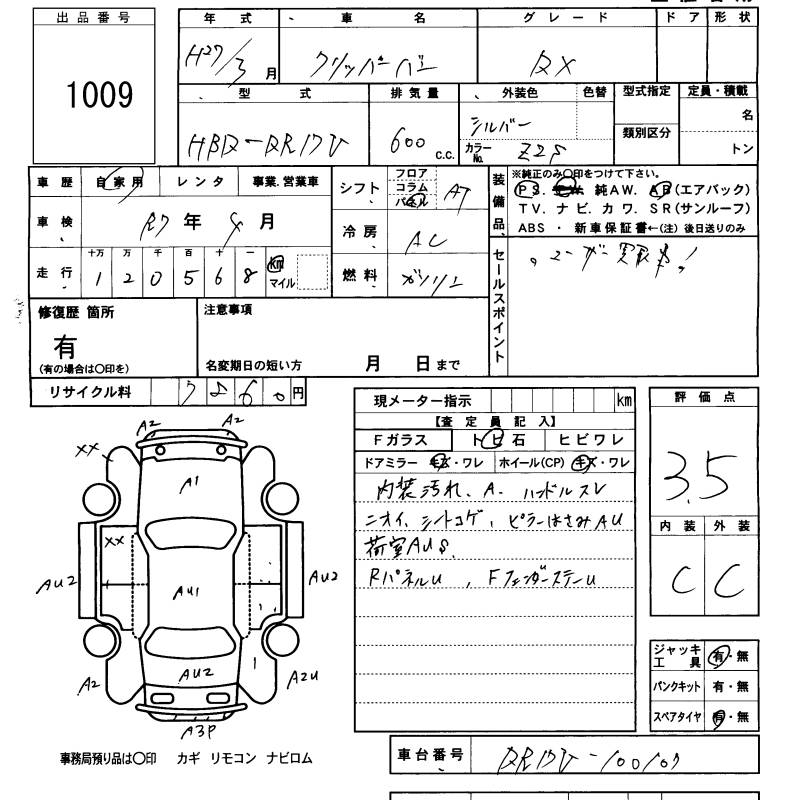 出品番号
1009
年式 車名 グレード ドア 形状
H27/3月 クリッパーバン DX
型式 排気量 外装色 色替 型式指定 定員・積載
HBD-DR17V 600 C.C. シルバー 類別区分 名
カラーNo. Z2S トン
車歴 自家用 レンタ 事業.営業車
車検 R7年 4月
走行 十万 万 千 百 十 一
1 2 0 5 6 8 km マイル
シフト フロア コラム パネル AT
冷房 AC
燃料 ガソリン
装備品
※純正のみ〇印をつけて下さい。
P S. 純AW. AB(エアバック)
TV. ナビ. カワ. SR(サンルーフ)
ABS ・ 新車保証書←(注) 後日送りのみ
セールスポイント
ユーザー買取車!
修復歴 箇所
有
(有の場合は〇印を)
注意事項
名変期日の短い方 月 日まで
リサイクル料 円
現メーター指示 km
【査定員記入】
Fガラス トビ石 ヒビワレ
ドアミラー キズ・ワレ ホイール(CP) キズ・ワレ
内装汚れ、A. ハンドルスレ
ニオイ、シートコゲ、ピラーはさみAU
荷室AUS.
RパネルU , FフェンダーステーU
評価点
3.5
内装 外装
C C
ジャッキ工具 有・無
パンクキット 有・無
スペアタイヤ 有・無
A2 A2
XX
A1
XX
AU2 AU1 AU2
AU2
A2 A2U
A3P
事務局預り品は〇印 カギ リモコン ナビロム
車台番号 DR17V-100107